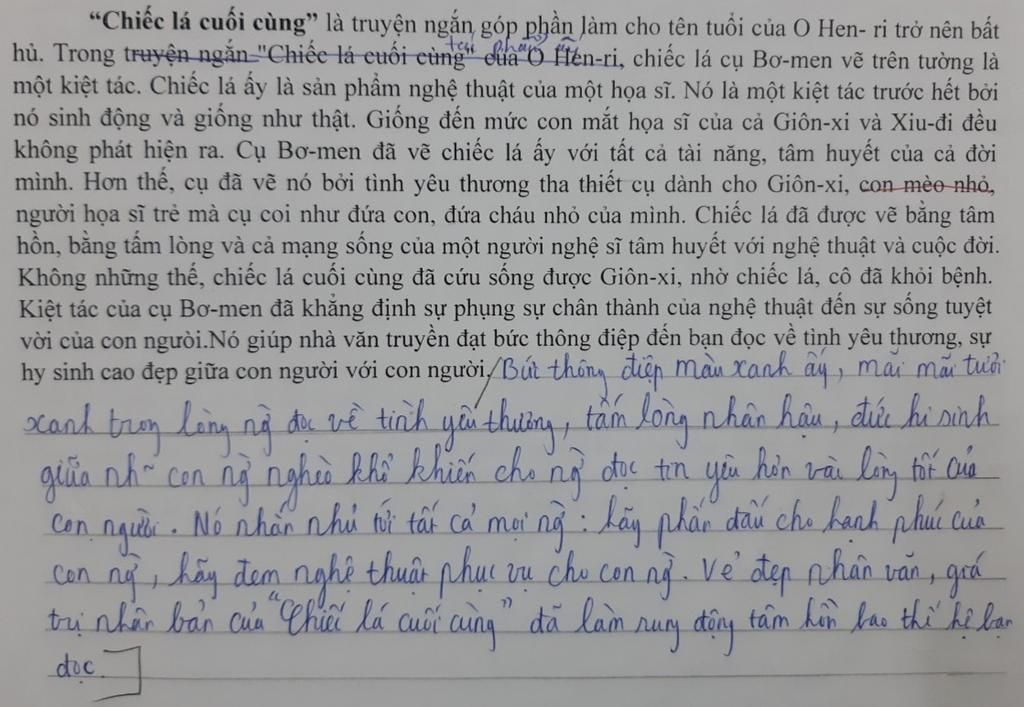 “Chiếc lá cuối cùng” là truyện ngắn góp phần làm cho tên tuổi của O Hen- ri trở nên bất
tác phẩm
hủ. Trong truyện ngắn "Chiếc lá cuối cùng" của O Hen-ri, chiếc lá cụ Bơ-men vẽ trên tường là
một kiệt tác. Chiếc lá ấy là sản phẩm nghệ thuật của một họa sĩ. Nó là một kiệt tác trước hết bởi
nó sinh động và giống như thật. Giống đến mức con mắt họa sĩ của cả Giôn-xi và Xiu-đi đều
không phát hiện ra. Cụ Bơ-men đã vẽ chiếc lá ấy với tất cả tài năng, tâm huyết của cả đời
mình. Hơn thế, cụ đã vẽ nó bởi tình yêu thương tha thiết cụ dành cho Giôn-xi, con mèo nhỏ,
người họa sĩ trẻ mà cụ coi như đứa con, đứa cháu nhỏ của mình. Chiếc lá đã được vẽ bằng tâm
hồn, bằng tấm lòng và cả mạng sống của một người nghệ sĩ tâm huyết với nghệ thuật và cuộc đời.
Không những thế, chiếc lá cuối cùng đã cứu sống được Giôn-xi, nhờ chiếc lá, cô đã khỏi bệnh.
Kiệt tác của cụ Bơ-men đã khẳng định sự phụng sự chân thành của nghệ thuật đến sự sống tuyệt
vời của con ngưòi.Nó giúp nhà văn truyền đạt bức thông điệp đến bạn đọc về tình yêu thương, sự
hy sinh cao đẹp giữa con người với con người./Bức thông điệp màu xanh ấy, mãi mãi tươi
xanh trong lòng ng` đọc về tình yêu thương, tấm lòng nhân hậu, đức hi sinh
giữa nh~ con ng` nghèo khổ khiến cho ng` đọc tin yêu hơn vài lòng tốt của
con người. Nó nhắn nhủ tới tất cả mọi ng`: hãy phấn đấu cho hạnh phúc của
con ng`, hãy đem nghệ thuật phục vụ cho con ng`. Vẻ đẹp nhân văn, giá
trị nhân bản của "Chiếc lá cuối cùng" đã làm rung động tâm hồn bao thế hệ bạn
đọc.